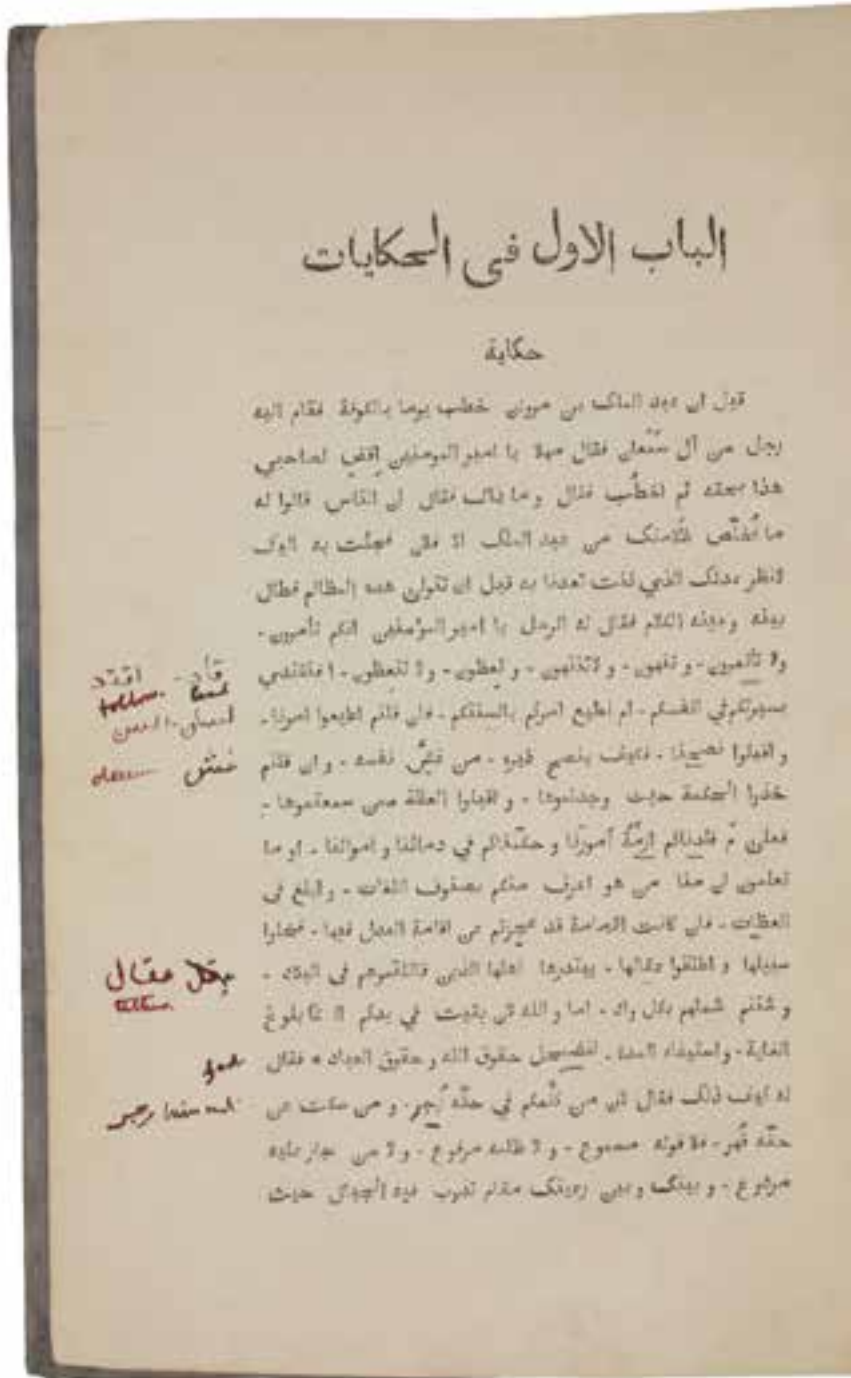 الباب الاول في الحكايات
حكاية
قيل ان عبد الملك بن مروان خطب يوما بالكوفة فقام اليه
رجل من آل سمعان فقال مهلا يا امير المومنين إقض لصاحبي
هذا بحقه ثم اخطب فقال وما ذاك فقال ان الناس قالوا له
ما يخلّص ظلامتك من عبد الملك الا فلان فجئت به اليك
لانظر عدلك الذي كنت تعدنا به قبل ان تتولى هذه المظالم فطال
بينه وبينه الكلام فقال له الرجل يا امير المؤمنين انكم تأمرون -
ولا تأتمرون - و تنهون - ولا تنتهون - و تعظون - ولا تتعظون - افنقتدي
بسيرتكم في انفسكم - ام نطيع امركم بالسنتكم - فان قلتم اطيعوا امرنا -
و اقبلوا نصيحتنا - فكيف ينصح غيره - من غشّ نفسه - و ان قلتم
خذوا الحكمة حيث وجدتموها - و اقبلوا العظة ممن سمعتموها -
فعلى مَ قلّدناكم ازمّة أمورنا و حكّمناكم في دمائنا و اموالنا - او ما
تعلمون ان منا من هو اعرف منكم بصنوف اللغات - و ابلغ في
العظات - فان كانت الامامة قد عجزتم عن اقامة العدل فيها - فخلوا
سبيلها و اطلقوا عقالها - يبتدرها اهلها الذين قاتلتموهم في البلاد -
و شتتم شملهم بكل واد - اما و الله لئن بقيت في يدكم الى بلوغ
الغاية - واستيفاء المدة - تضمحل حقوق الله و حقوق العباد * فقال
له كيف ذلك فقال لان من كلّمكم في حقّه زُجر - و من سكت عن
حقّه قُهر - فلا قوله مسموع - ولا ظلمه مرفوع - ولا من جار عليه
مردوع - و بينك وبين رعيتك مقام تذوب فيه الجبال حيث
قاد - اقتد
follow. lead
غش
عقال